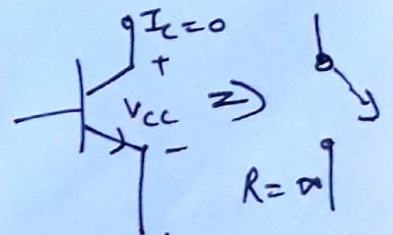 I_C=0
+
V_CC ⇒
-
R=∞